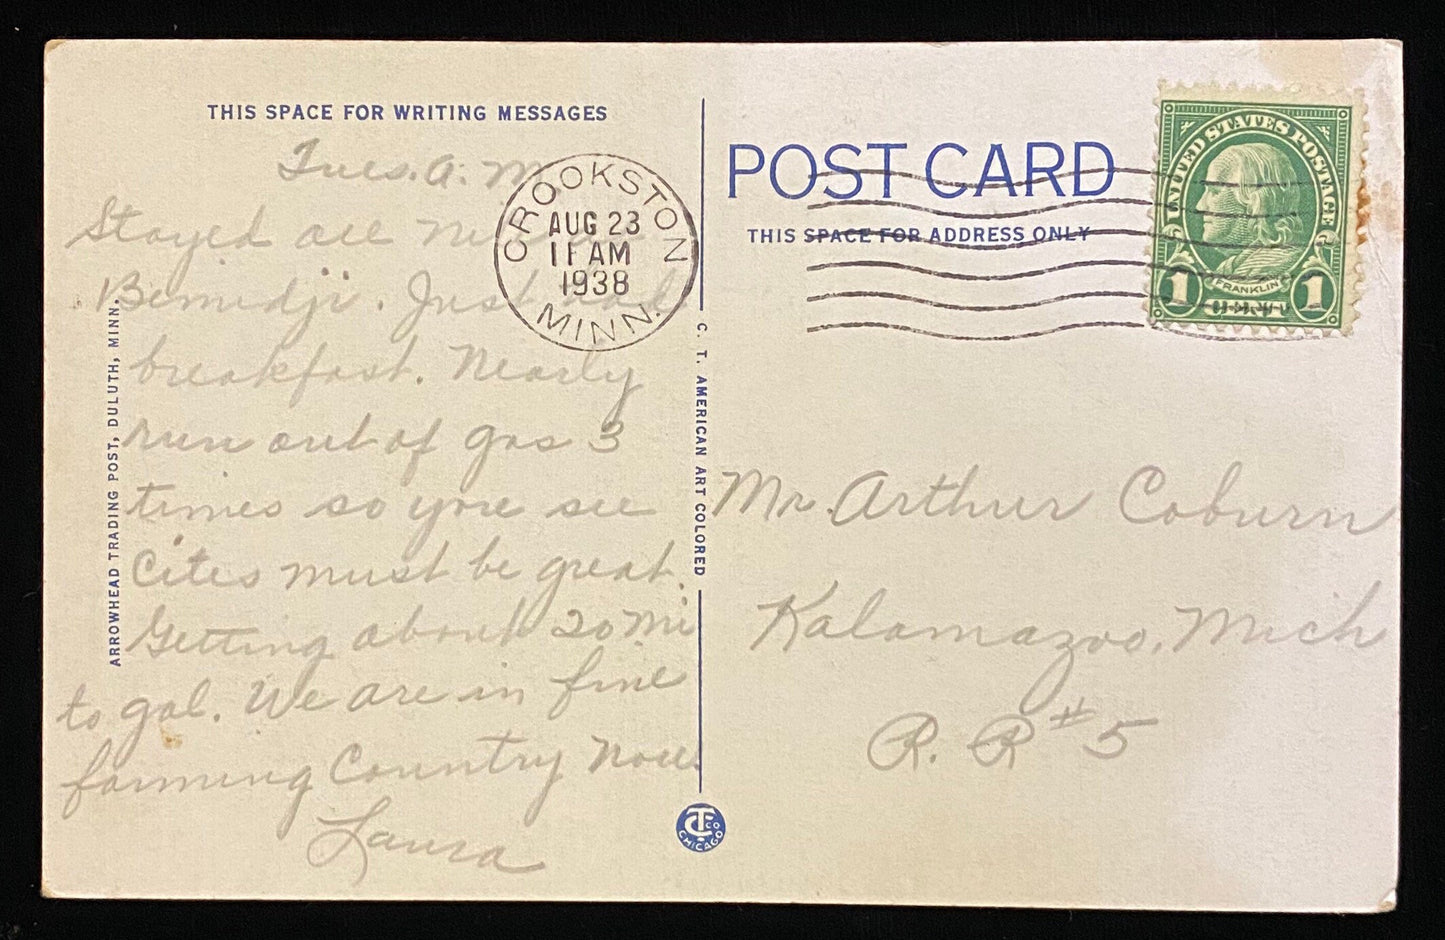 THIS SPACE FOR WRITING MESSAGES
Tues. A. M
Stayed all
Bemidji. Just had
breakfast. Nearly
run out of gas 3
times so you see
Cites must be great.
Getting about 20 mi
to gal. We are in fine
farming Country now.
Laura
ARROWHEAD TRADING POST, DULUTH, MINN.
CROOKSTON
AUG 23
11 AM
1938
MINN.
C. T. AMERICAN ART COLORED
CTCO
CHICAGO
POST CARD
THIS SPACE FOR ADDRESS ONLY
UNITED STATES POSTAGE
FRANKLIN
1 1
Mr. Arthur Coburn
Kalamazoo, Mich
R. R #5